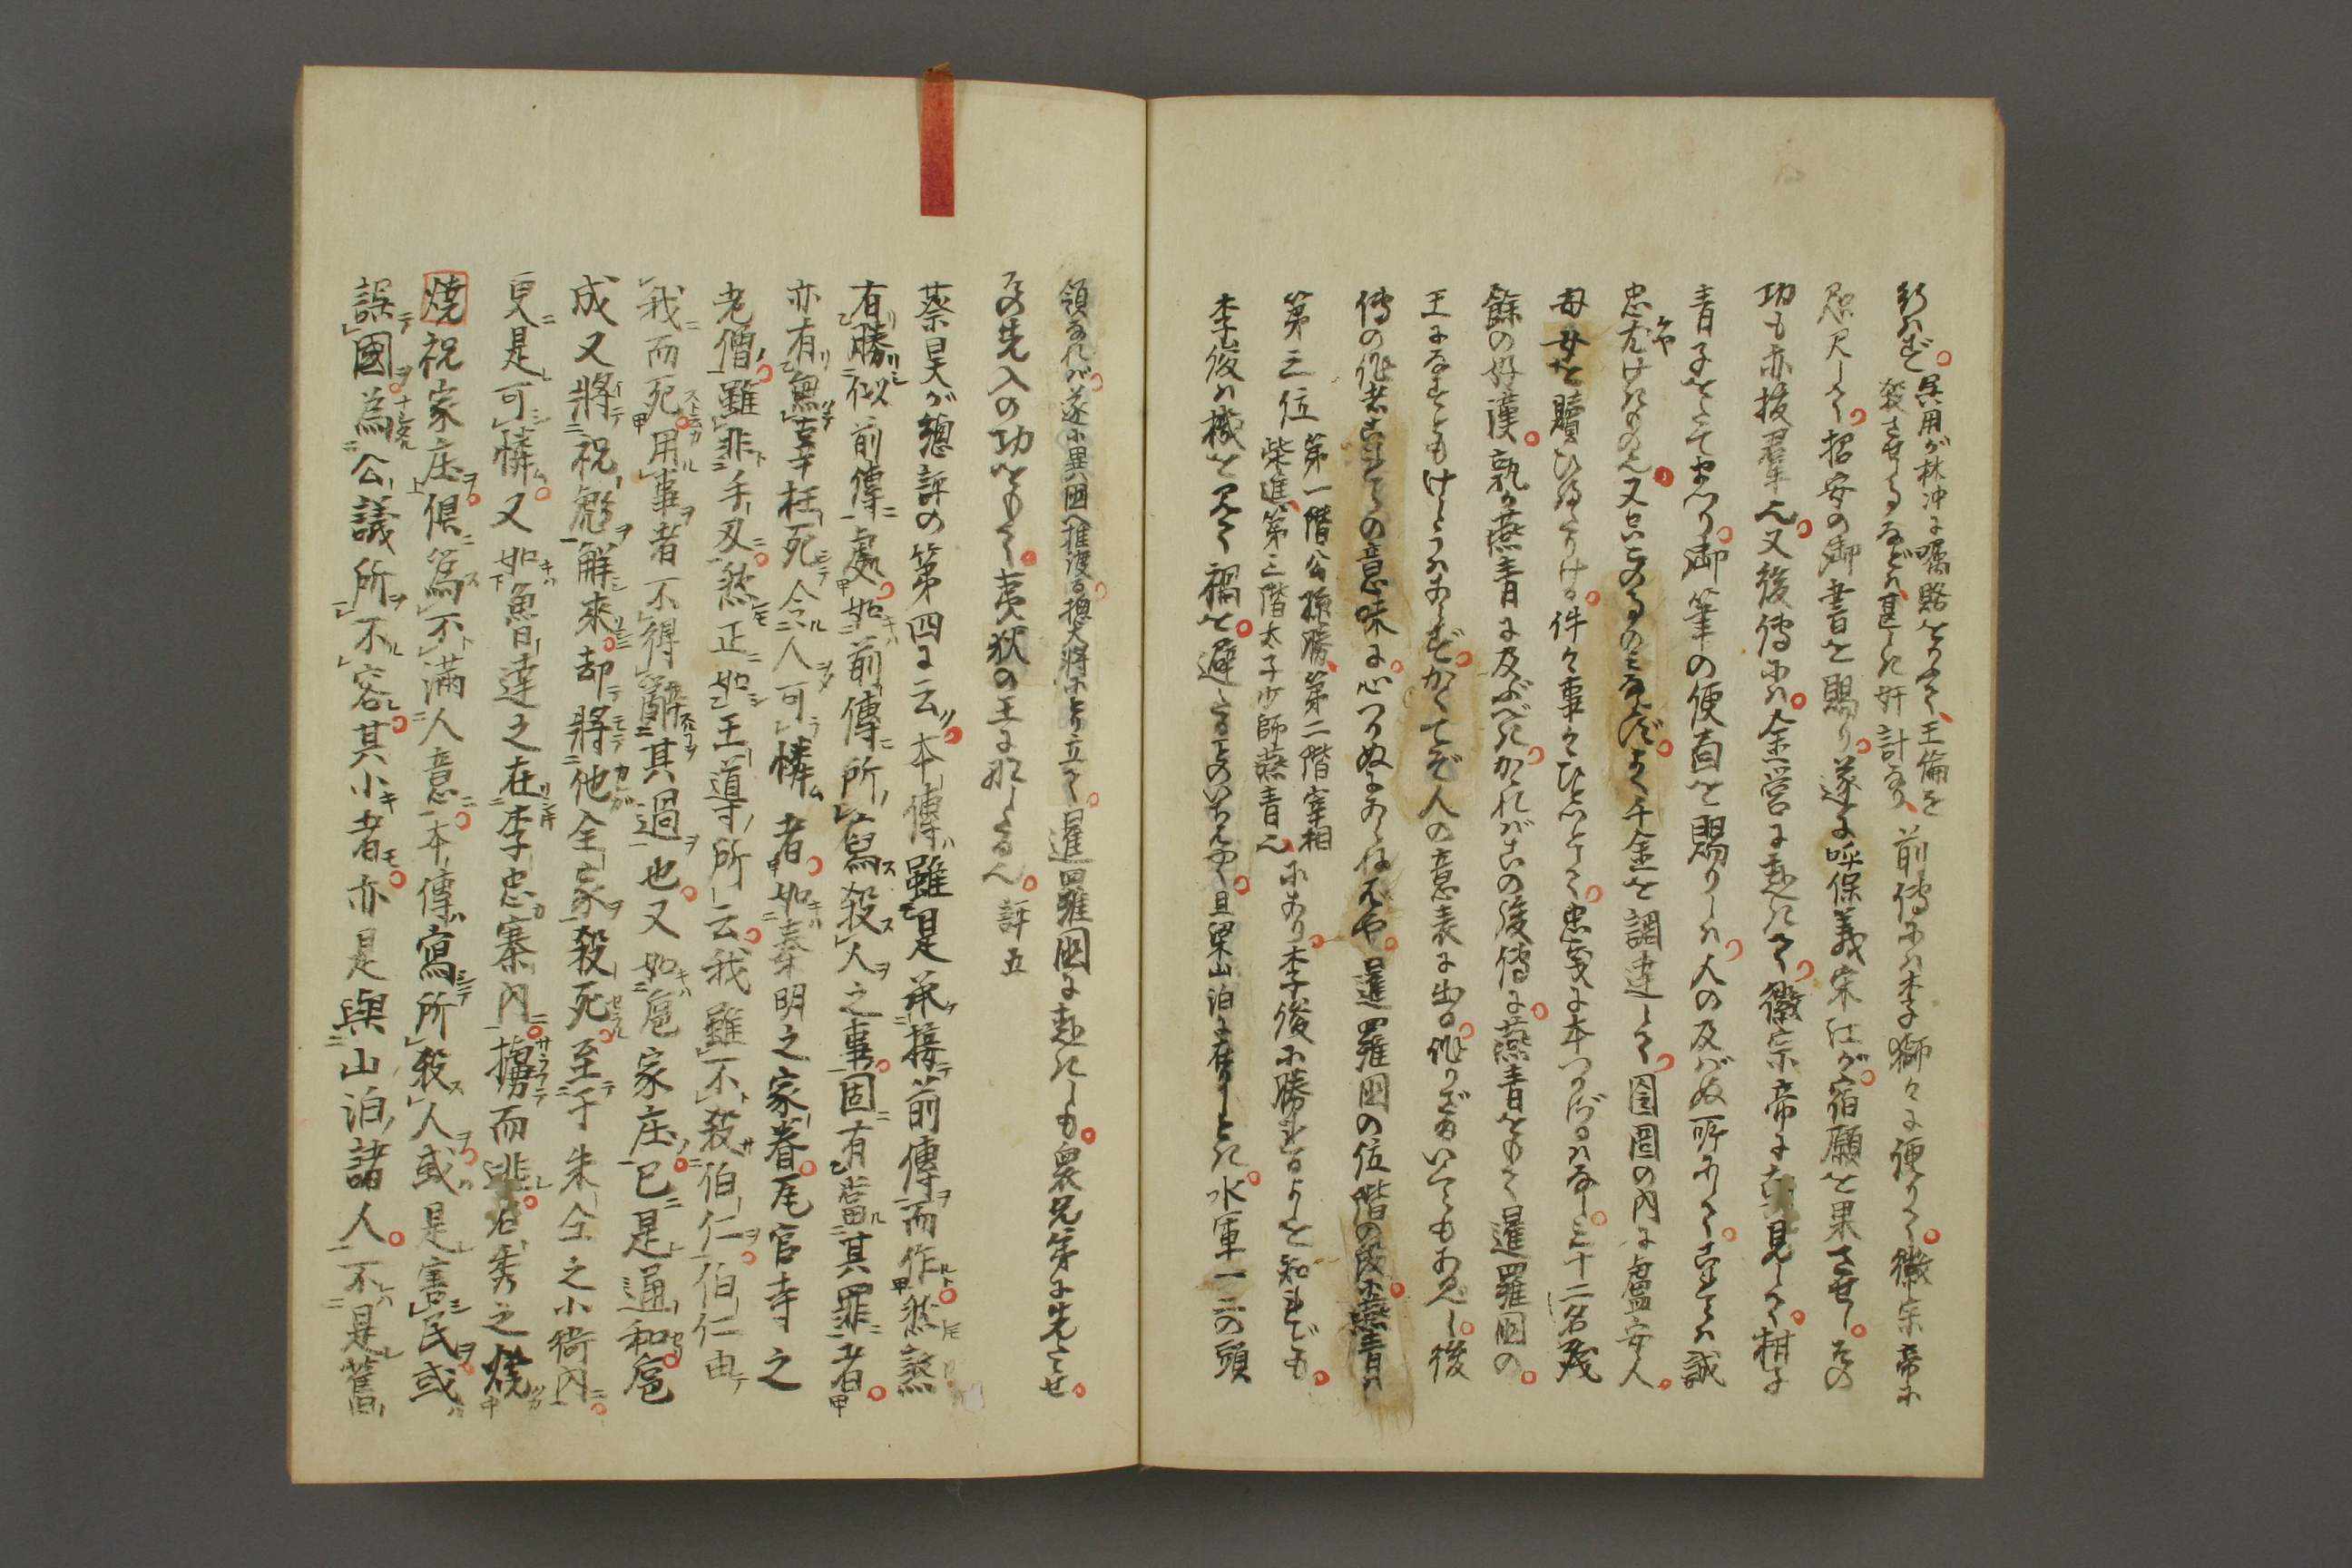 行はず。呉用が林冲に囑賂をかふて、王倫を殺させたるなどは、甚しき奸計なり、前傳には李獅々に便りて。徽宗帝に
咫尺して。招安の御書を賜り。遂に呼保義宋江が。宿願を果させし。その
功も亦拔羣也。又後傳には。金営に赴きて。徽宗帝に見して。柑子
青子をたてまつり。御筆の便面を賜りしは。人の及ばぬ所にして。これらは誠
忠尤けやけきもの也。又只このことのみならず。よく千金を調達して。囹圄の内に盧安人
母女を贖ひ得たりける。件々事々ひとつとして。忠義に本つかざるはなし。三十二名殘
餘の好漢。孰か燕青に及ぶべき。かゝればこの後傳に。燕青をもて暹羅國の。
王になすともけしうはあらず。かくてぞ人の意表に出る。作りざまといふもあるべし。後
傳の作者これらの意味に。心つかぬにあらねども。暹羅國の位階の段に。燕青は
第三位 第一階公孫勝、第二階宰相柴進、第三階太子少師燕青也 にあり。李俊に勝れるよしを知れども。
李俊は機を見て禍を。避たるのいちはやく。且梁山泊に在りしとき。水軍一ニの頭
領なれば。遂に異國推渡る。惣大將にとり立て。暹羅國に赴きしも。衆兄弟に先たせ。
その先入の功をもて。夷狄の王に做したる也。評五
蔡昊が總評の第四に云。本傳雖是承接前傳而作。然煞
有勝似前傳處。如前傳所寫殺人之事。固有當其罪者。
亦有無辜枉死令人可憐者。如秦明之家眷。瓦官寺之
老僧。雖非手刃。然正如王導所云。我雖不殺伯仁。伯仁由
我而死。用事者不得辭其過也。又如扈家庄。已是通和。扈
成又將祝彪解來。却將他全家殺死。至于朱仝之小衙內。
更是可憐。又如魯達之在李忠寨內。擄而逃。石秀之燒
燒祝家庄。俱爲不滿人意。本傳寫所殺人。或是害民。或
誤國。為公議所不容。其小者。亦是與山泊諸人。不是舊